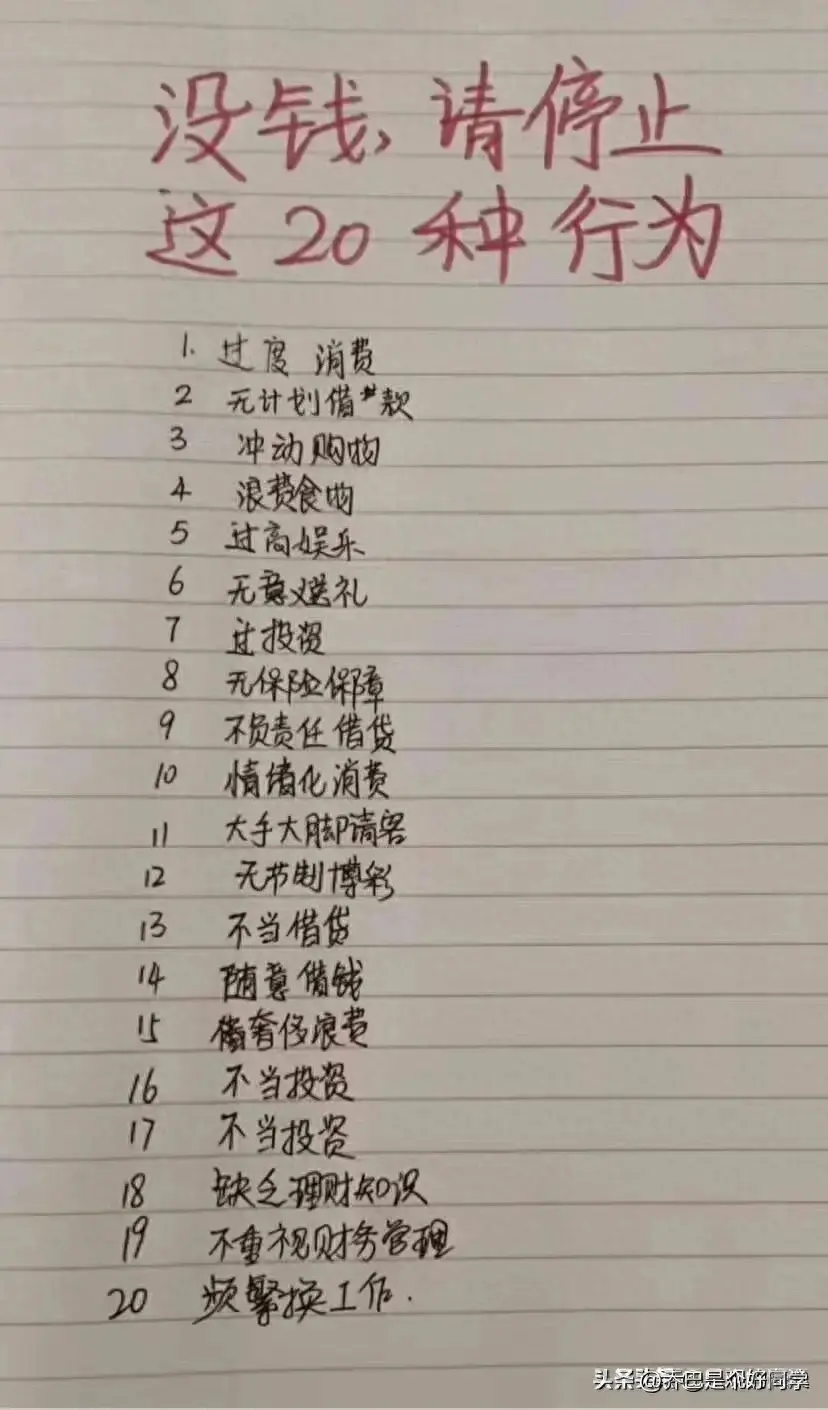 没钱、请停止
这 20 种行为
1. 过度 消费
2 无计划借#款
3 冲动购物
4 浪费食物
5 过高娱乐
6 无意义送礼
7 过投资
8 无保险保障
9 不负责任借贷
10 情绪化消费
11 大手大脚请客
12 无节制博彩
13 不当借贷
14 随意借钱
15 奢侈浪费
16 不当投资
17 不当投资
18 缺乏理财知识
19 不重视财务管理
20 频繁换工作.
头条 @乔巴是个好同学